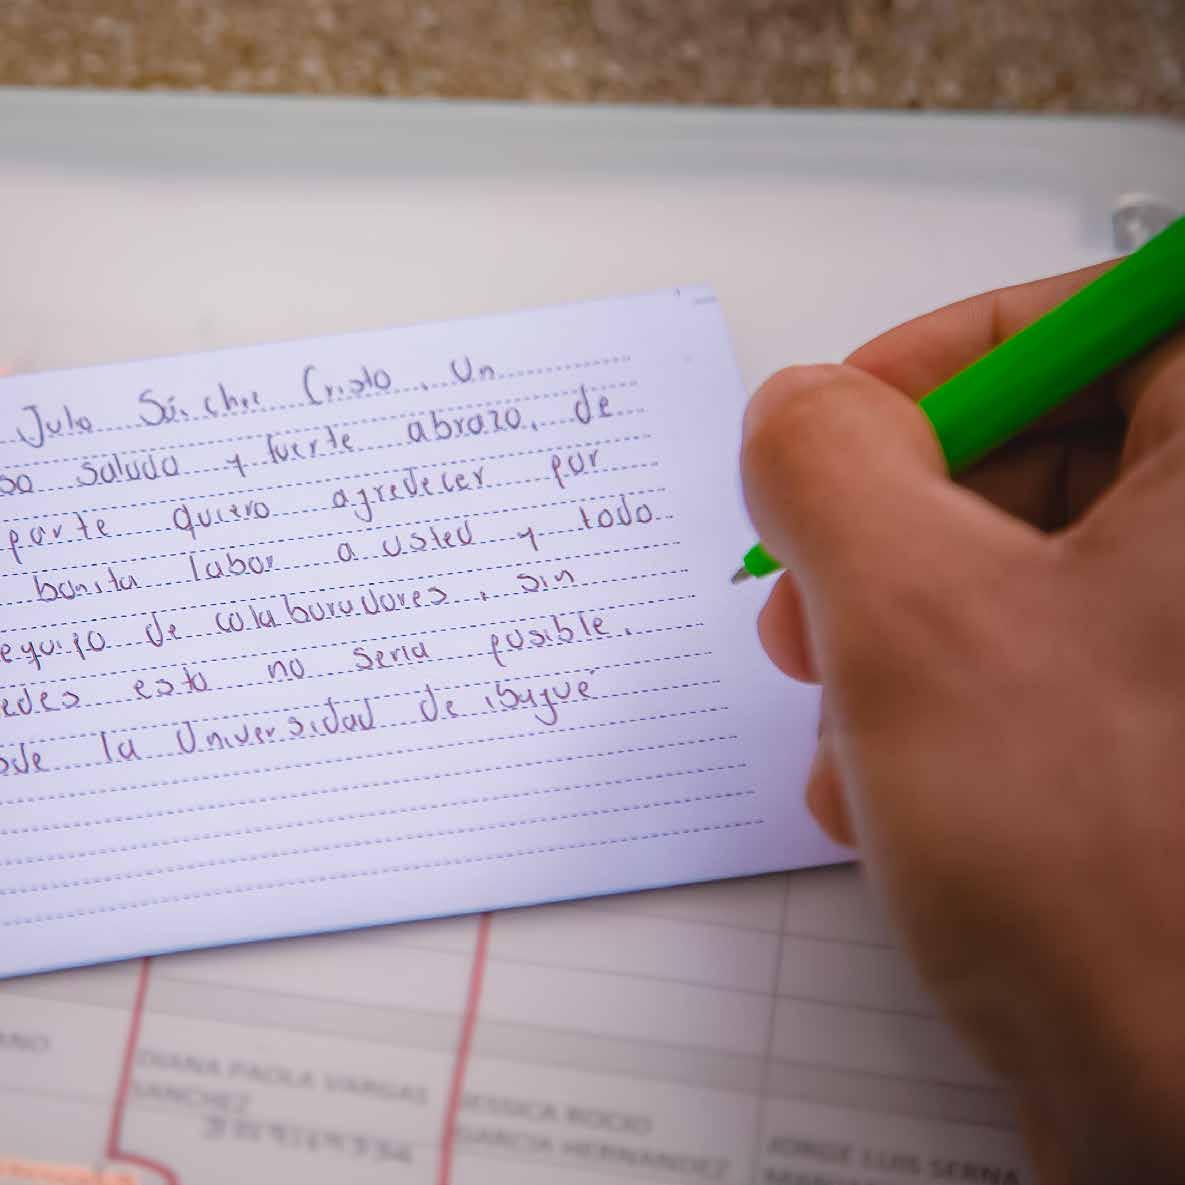 Julo Sánchez Cristo, Un
so saludo y fuerte abrazo, de
parte quiero agredecer por
bonita labor a usted y todo
equipo de colaboradores, sin
edes esto no seria posible.
sde la Universidad de ibagué
ANO
DIANA PAOLA VARGAS
SANCHEZ
JESSICA ROCIO
GARCIA HERNANDEZ
JORGE LUIS SERNA